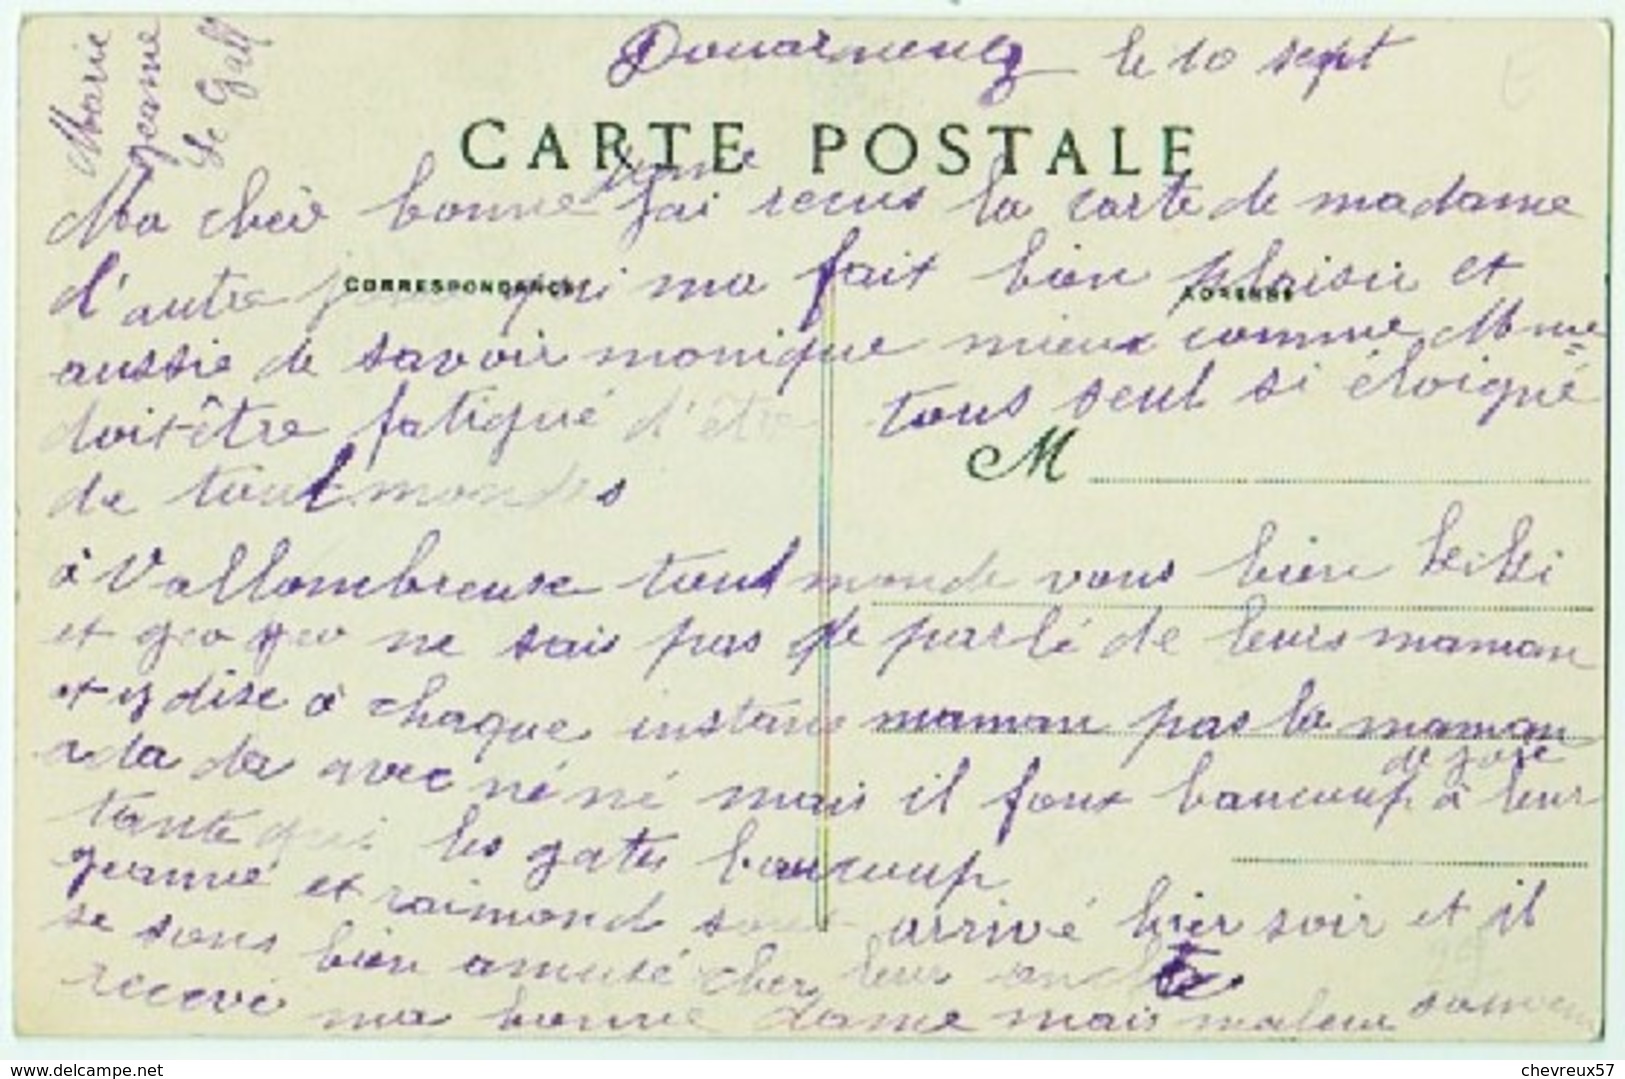 Douarnenez le 10 sept
Marie
Jeanne
Le Gall
CARTE POSTALE
Ma cheir bonne dame jai recus la carte de madame
d'autre jour qui ma fait bien plaisir et
CORRESPONDANCE
ADRESSE
aussie de savoir monique mieux comme Mme
doit être fatigué d'être tous seul si éloigné
M
de tout mondes
à Vallombreuse tout monde vous bien kiki
et geo geo ne sais pas de parlé de leurs maman
et y dise à chaque instant maman pas la maman
de josé
a da da avec néné mais il foux baucoup à leur
tante qui les gater baucoup
jeanne et raimond sont arrivé hier soir et il
se sons bien amusé cher leur oncle
recevé ma bonne dame mais maleur
delcampe.net
chevreux57